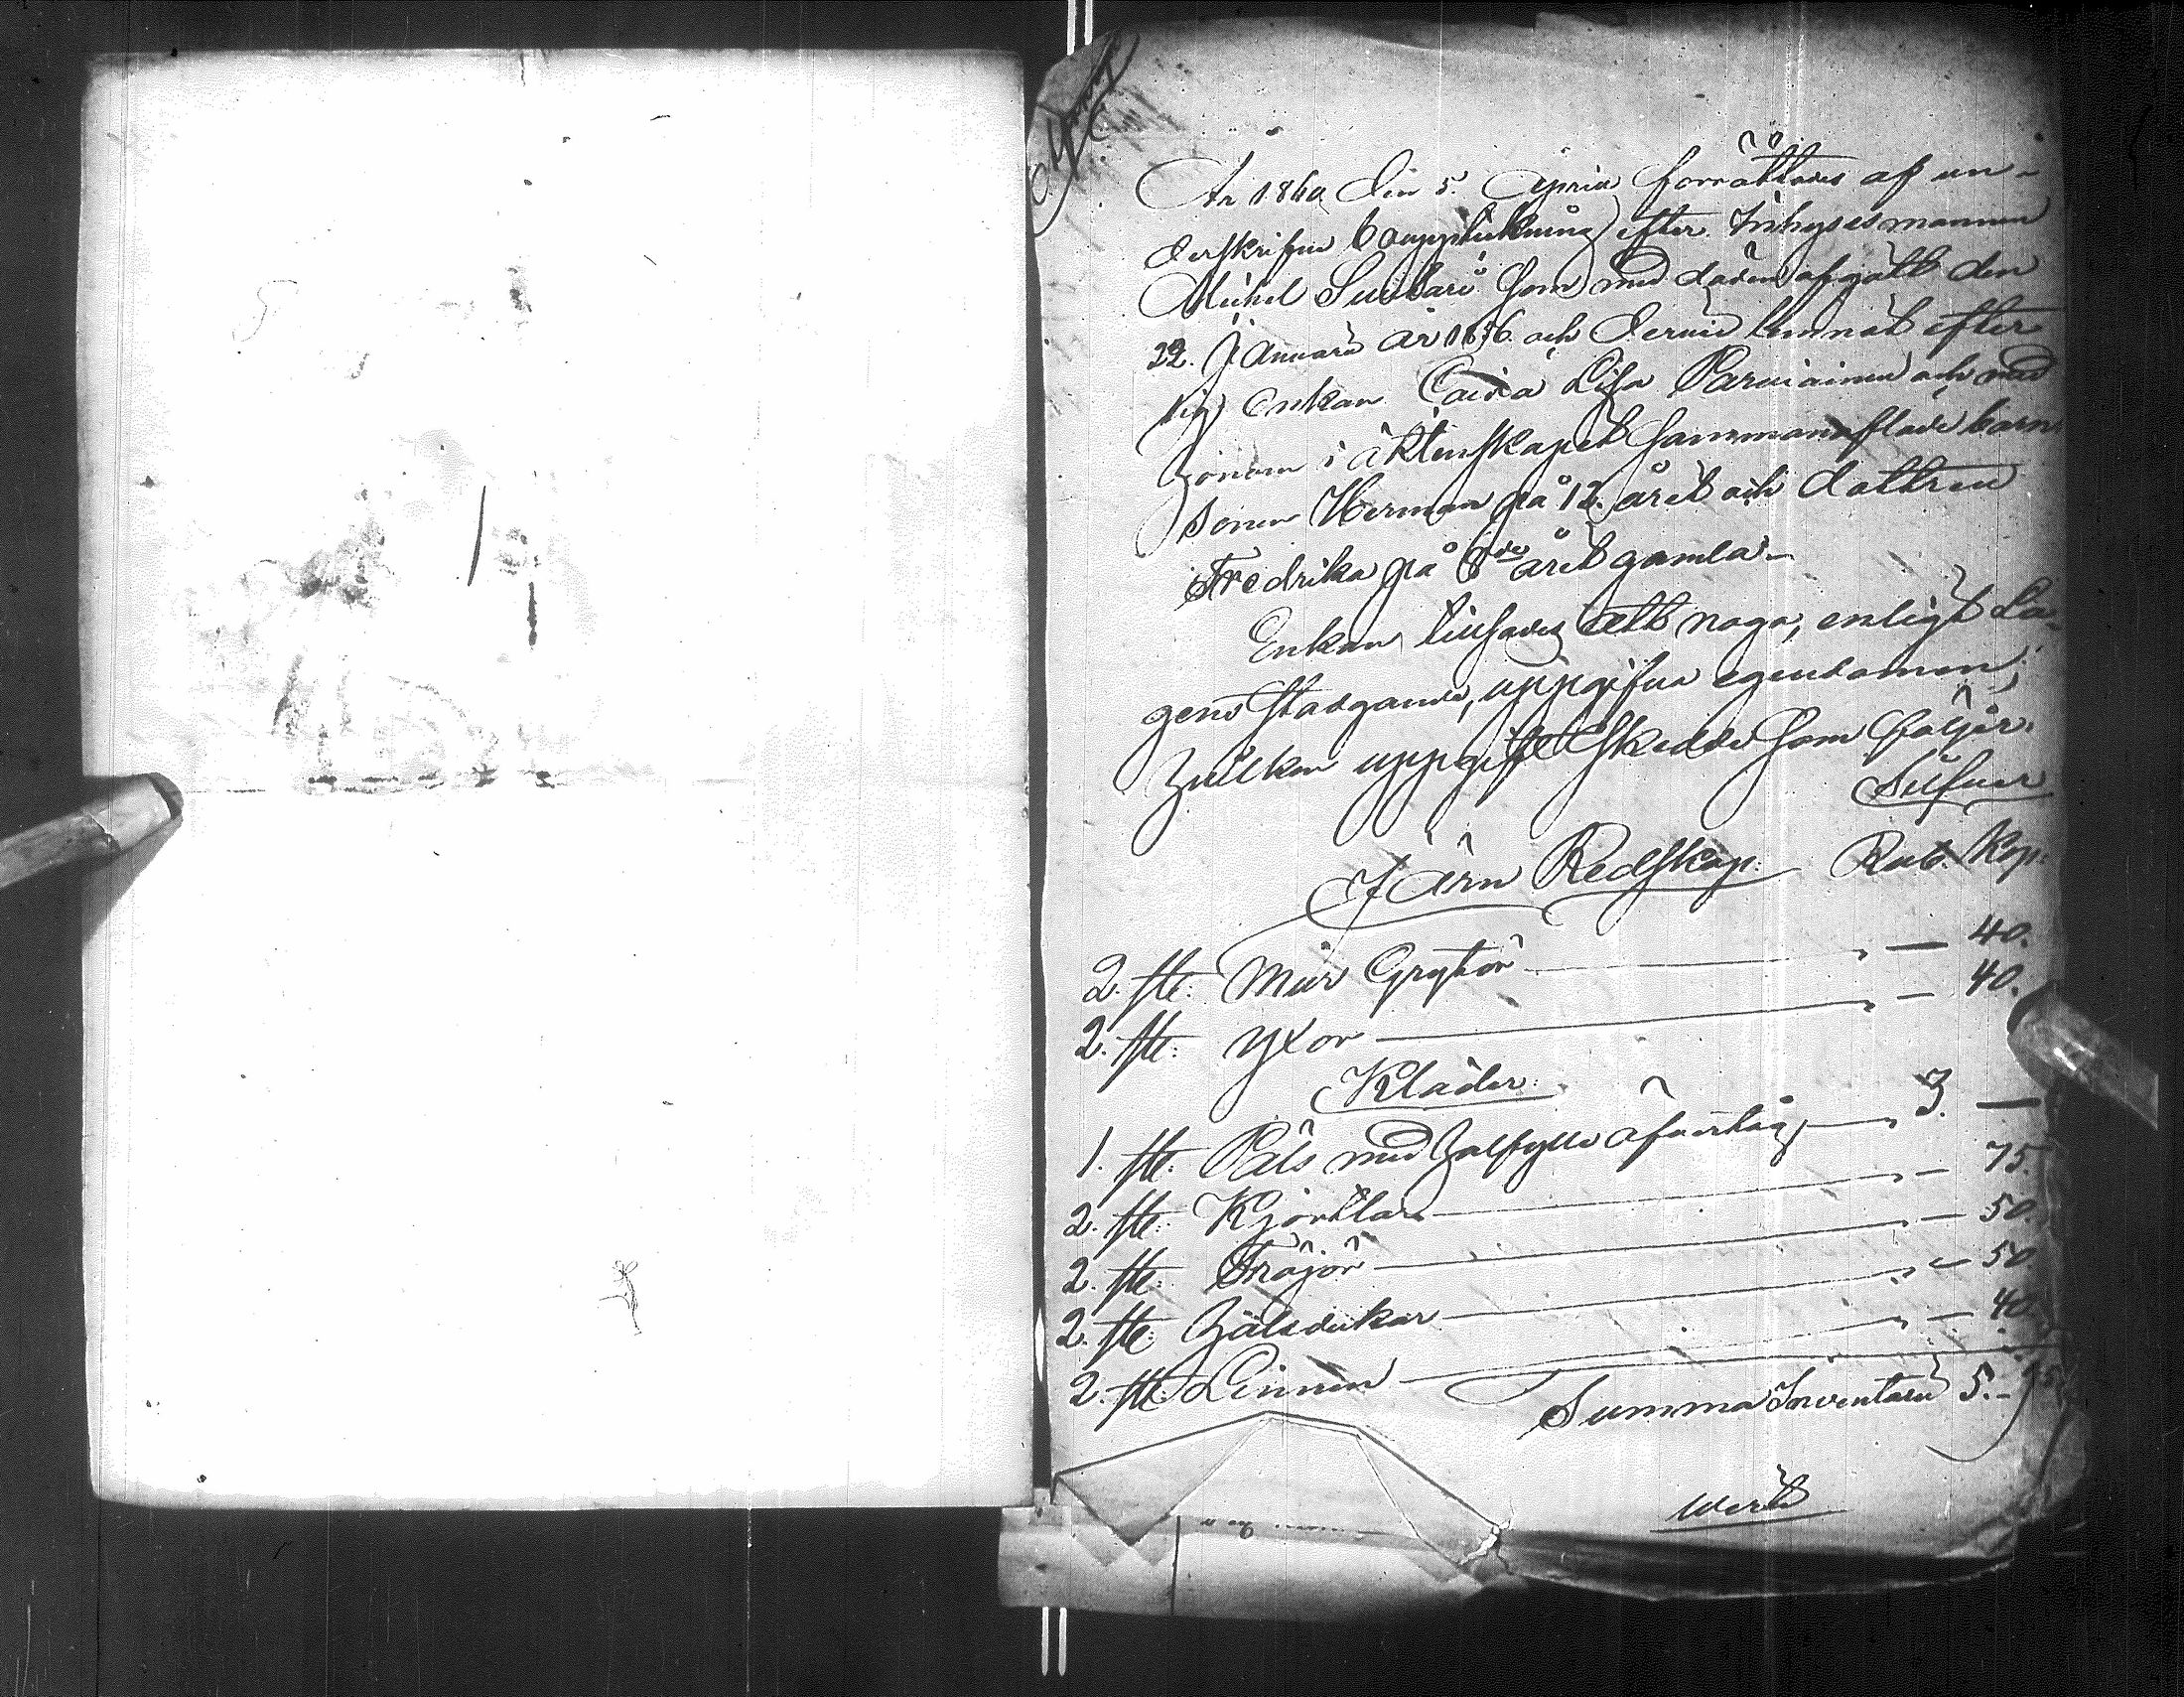 År 1860 den 5. April förrättades af un-
derskrifne bouppteckning efter Inhysesmannen
Michel Suikari som med döden afgått den
22. Januarii år 1856. och dervid lemnat efter
sig Enkan Caisa Lisa Parviainen och med
honom i äktenskapet sammanaflade barn
Sonen Herman på 12. året och dottren
Fredrika på 8de året gamla.
Enkan tillsades att noga, enligt La-
gens stadgande, uppgifva egendomen,
hvilken uppgift skedde som följer:
Silfver
Järn Redskap. Rub. Kop:
2. ste: Mur Grytör " — 40.
2. ste: Yxor " — 40.
Kläder.
1. ste: Päls med halfylle öfverlåg, " 3. —
2. ste: Kjortlar " — 75.
2. ste: Tröjör " — 50.
2. ste: Halsdukar " — 50
2. ste: Linnen " — 40
Summa Inventarii 5. - 95
werts